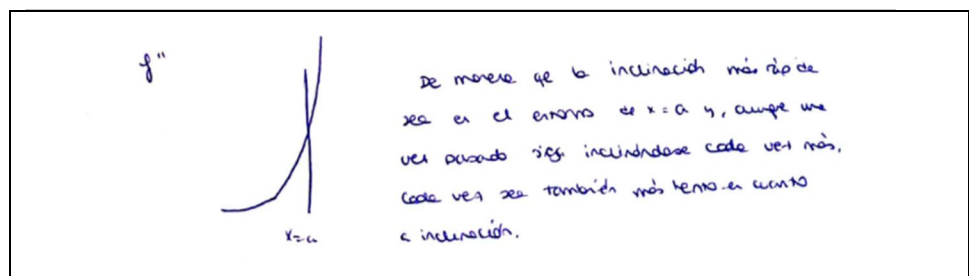 f''
De manera qe la inclinación más rápida
sea en el entorno de x=a y, aunqe una
vez pasado siga inclinándose cada vez más,
cada vez sea también más lento en cuanto
a inclinación.
x=a